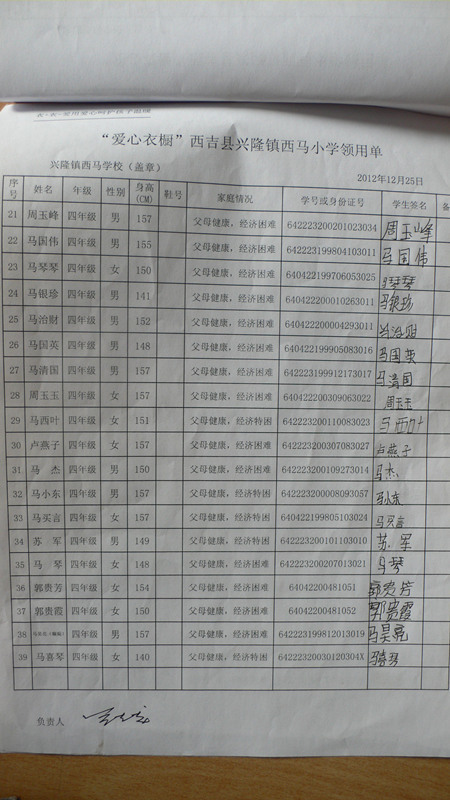 “爱心衣橱”西吉县兴隆镇西马小学领用单
兴隆镇西马学校（盖章） 2012年12月25日
序号 姓名 年级 性别 身高(CM) 鞋号 家庭情况 学号或身份证号 学生签名 备
21 周玉峰 四年级 男 157 父母健康，经济困难 642223200201023034 周玉峰
22 马国伟 四年级 男 155 父母健康，经济困难 642223199804103011 马国伟
23 马琴琴 四年级 女 150 父母健康，经济困难 640422199706053025 马琴琴
24 马银珍 四年级 男 141 父母健康，经济困难 642222200010263011 马银珍
25 马治财 四年级 男 152 父母健康，经济困难 642222200004293011
26 马国英 四年级 男 148 父母健康，经济困难 640422199905083016 马国英
27 马清国 四年级 男 157 父母健康，经济困难 642223199912173017 马清国
28 周玉玉 四年级 女 157 父母健康，经济困难 642222200309063022 周玉玉
29 马西叶 四年级 女 151 父母健康，经济特困 642223200110083023 马西叶
30 卢燕子 四年级 女 157 父母健康，经济困难 642223200307083027 卢燕子
31 马杰 四年级 男 150 父母健康，经济困难 642223200109273014 马杰
32 马小东 四年级 男 157 父母健康，经济特困 642223200008093057 马小东
33 马买言 四年级 女 157 父母健康，经济特困 640422199805103024 马买言
34 苏军 四年级 男 149 父母健康，经济特困 642223200101103010 苏军
35 马琴 四年级 女 148 父母健康，经济困难 642223200207013021 马琴
36 郭贵芳 四年级 女 154 父母健康，经济困难 64042200481051 郭贵芳
37 郭贵霞 四年级 女 150 父母健康，经济困难 64042200481052 郭贵霞
38 四年级 男 157 父母健康，经济困难 642223199812013019
39 马喜琴 四年级 女 140 父母健康，经济特困 64222320030120304X 马喜琴
负责人